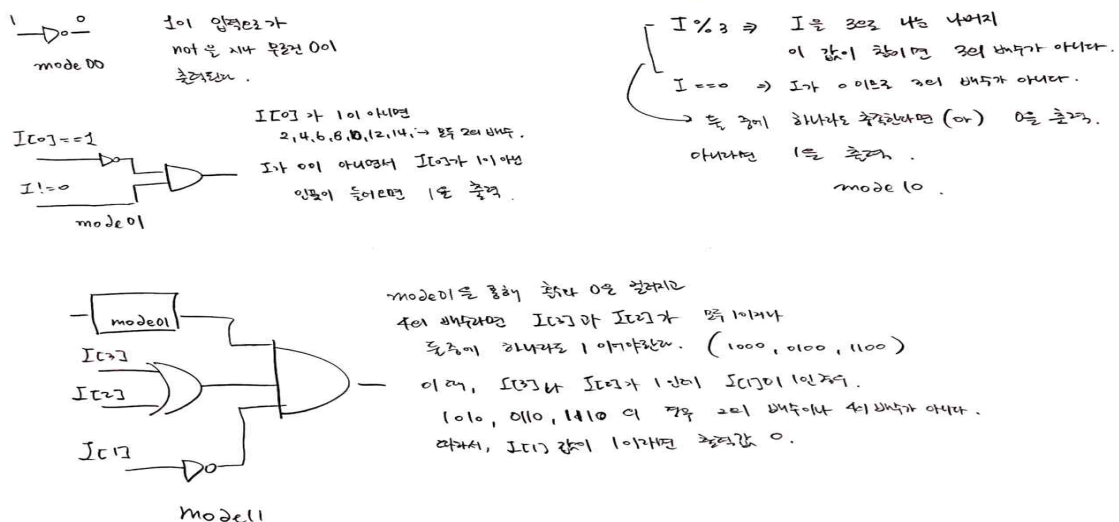 1 0
mode 00
1이 입력으로가
not 을 지나 무조건 0이
출력된다.
I[0]==1
I!=0
mode01
I[0]가 1이 아니면
2,4,6,8,10,12,14, → 모두 2의 배수.
I가 0이 아니면서 I[0]가 1이 아닌
인풋이 들어오면 1을 출력.
I%3 ⇒ I을 3으로 나눈 나머지
이 값이 참이면 3의 배수가 아니다.
I===0 ⇒ I가 0이므로 3의 배수가 아니다.
둘 중에 하나라도 충족한다면 (or) 0을 출력.
아니라면 1을 출력.
mode 10.
mode01
I[3]
I[2]
I[1]
mode11
mode01을 통해 홀수와 0을 걸러지고
4의 배수라면 I[3]과 I[2]가 모두 1이거나
둘중에 하나라도 1 이어야한다. (1000, 0100, 1100)
이 때, I[3]나 I[2]가 1인데 I[1]이 1인경우.
1010, 0110, 1110 의 경우 2의 배수이나 4의 배수가 아니다.
따라서, I[1] 값이 1이라면 출력값 0.